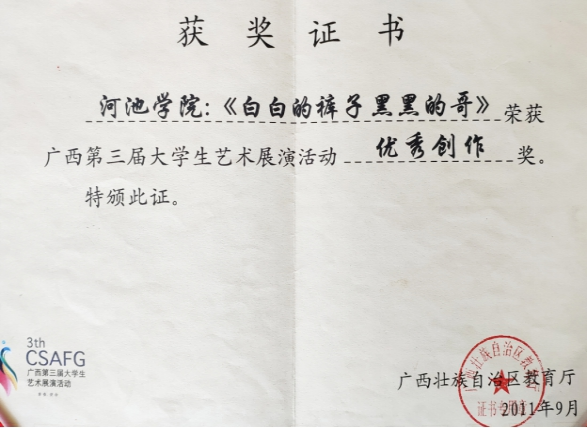 获奖证书
河池学院:《白白的裤子黑黑的哥》荣获
广西第三届大学生艺术展演活动 优秀创作 奖。
特颁此证。
3th
CSAFG
广西第三届大学生
艺术展演活动
广西壮族自治区教育厅
2011年9月
广西壮族自治区教育厅
证书专用章